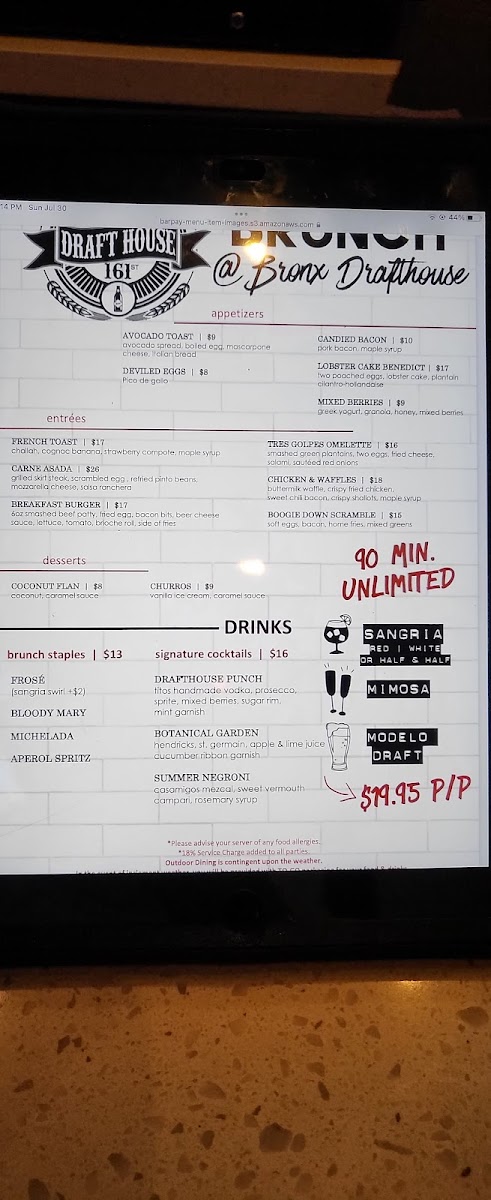 14 PM Sun Jul 30
44%
barpay-menu-item-images.s3.amazonaws.com
DRAFT HOUSE
161ST
BRUNCH
@ Bronx Drafthouse
appetizers
AVOCADO TOAST | $9
avocado spread, boiled egg, mascarpone
cheese, italian bread
DEVILED EGGS | $8
Pico de gallo
CANDIED BACON | $10
pork bacon, maple syrup
LOBSTER CAKE BENEDICT | $17
two poached eggs, lobster cake, plantain
cilantro-hollandaise
MIXED BERRIES | $9
greek yogurt, granola, honey, mixed berries
entrées
FRENCH TOAST | $17
challah, cognac banana, strawberry compote, maple syrup
CARNE ASADA | $26
grilled skirt steak, scrambled egg, refried pinto beans,
mozzarella cheese, salsa ranchera
BREAKFAST BURGER | $17
6oz smashed beef patty, fried egg, bacon bits, beer cheese
sauce, lettuce, tomato, brioche roll, side of fries
TRES GOLPES OMELETTE | $16
smashed green plantains, two eggs, fried cheese,
salami, sautéed red onions
CHICKEN & WAFFLES | $18
buttermilk waffle, crispy fried chicken,
sweet chili bacon, crispy shallots, maple syrup
BOOGIE DOWN SCRAMBLE | $15
soft eggs, bacon, home fries, mixed greens
desserts
COCONUT FLAN | $8
coconut, caramel sauce
CHURROS | $9
vanilla ice cream, caramel sauce
90 MIN.
UNLIMITED
SANGRIA
RED | WHITE
OR HALF & HALF
MIMOSA
MODELO
DRAFT
$19.95 P/P
DRINKS
brunch staples | $13
FROSÉ
(sangria swirl +$2)
BLOODY MARY
MICHELADA
APEROL SPRITZ
signature cocktails | $16
DRAFTHOUSE PUNCH
titos handmade vodka, prosecco,
sprite, mixed berries, sugar rim,
mint garnish
BOTANICAL GARDEN
hendricks, st. germain, apple & lime juice
cucumber ribbon garnish
SUMMER NEGRONI
casamigos mezcal, sweet vermouth
campari, rosemary syrup
*Please advise your server of any food allergies.
*18% Service Charge added to all parties.
Outdoor Dining is contingent upon the weather.